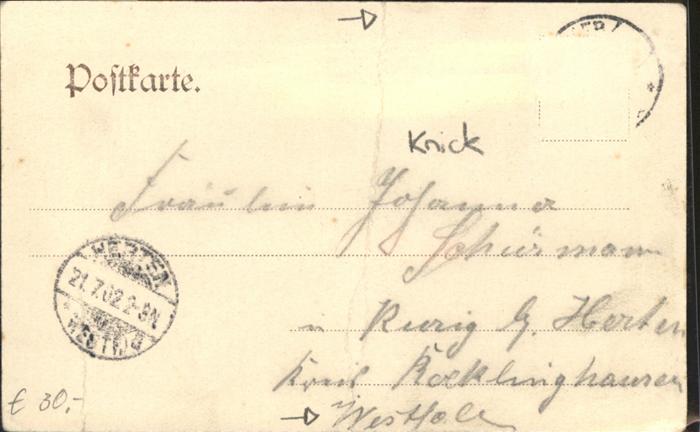 Postkarte.
Knick
Fräulein Johanna
Schürmann
HERTEN
21.7.02 2-3N
(WESTF)
in G. Herten
Kreis Recklinghausen
€ 30,-
Westfalen